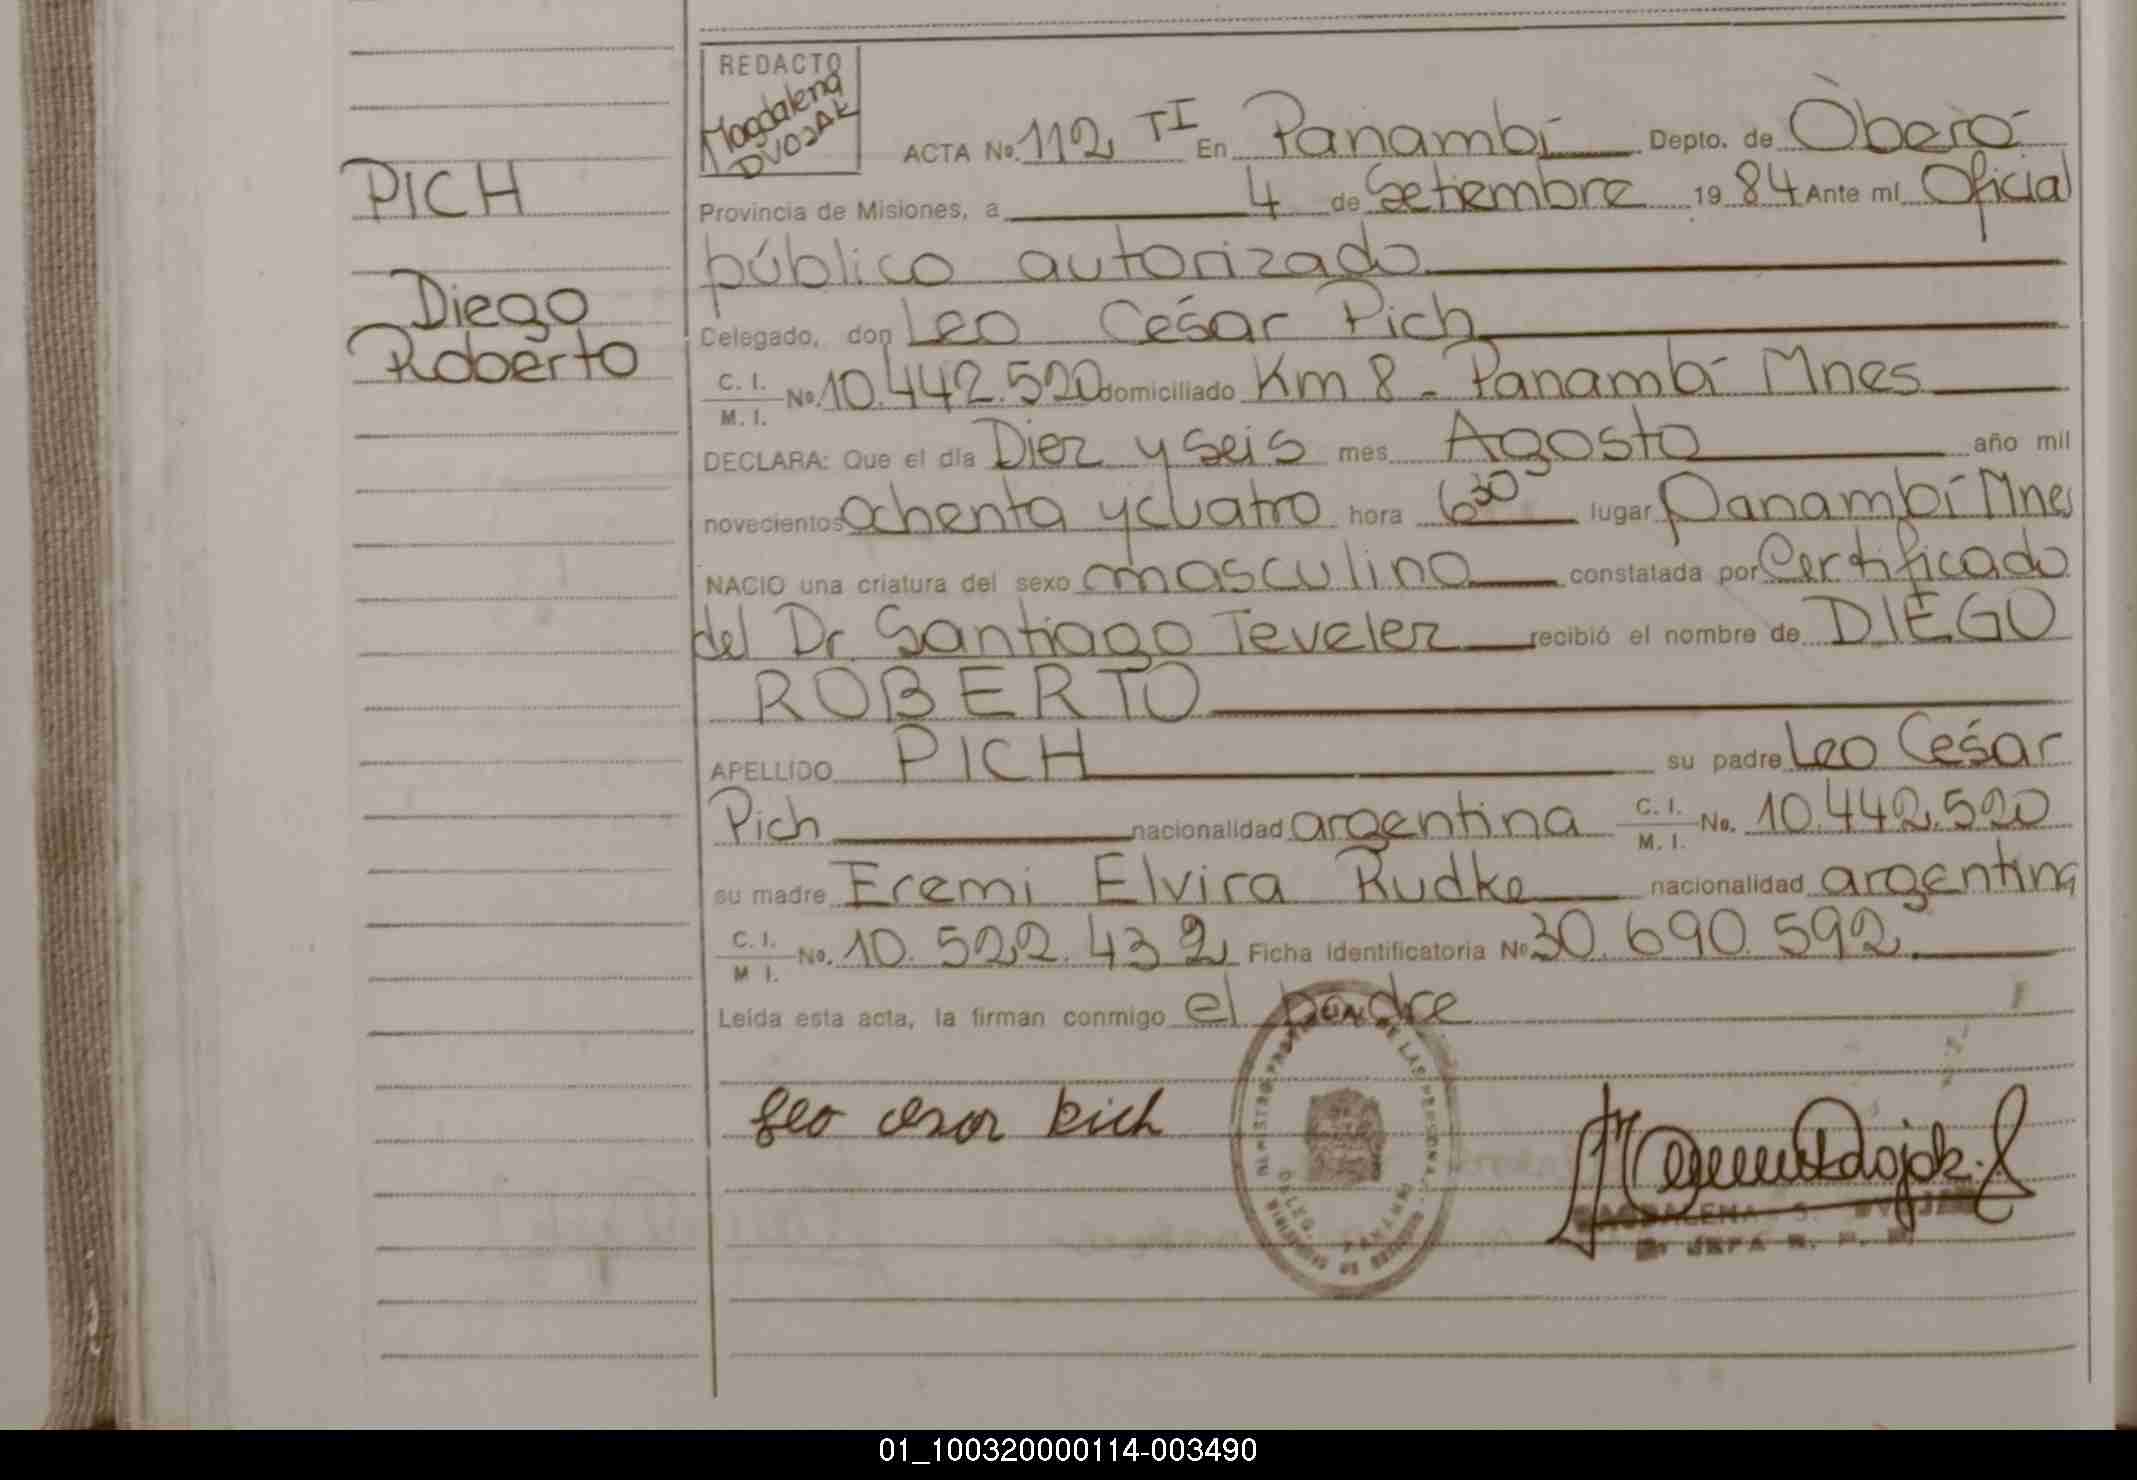 REDACTO
Magdalena
DVOJAK
ACTA No. 112 TI En Panambí Depto. de Òberá
PICH
Provincia de Misiones, a 4 de Setiembre 1984 Ante mí Oficial
público autorizado
Diego
Celegado, don Leo César Pich
Roberto
C. I.
M. I. No. 10.442.520 domiciliado Km 8 - Panambí Mnes
DECLARA: Que el día Diez y seis mes Agosto año mil
novecientos ochenta y cuatro hora 6 30 lugar Panambí Mnes
NACIO una criatura del sexo masculino constatada por Certificado
del Dr. Santiago Teveler recibió el nombre de DIEGO
ROBERTO
APELLIDO PICH su padre Leo César
Pich nacionalidad argentina C. I. M. I. No. 10.442.520
su madre Eremi Elvira Rudke nacionalidad argentina
C. I. M I. No. 10.522.432 Ficha Identificatoria No 30.690.592
Leída esta acta, la firman conmigo el padre
Leo cesar Pich
MAGDALENA S. DVOJAK
01_100320000114-003490